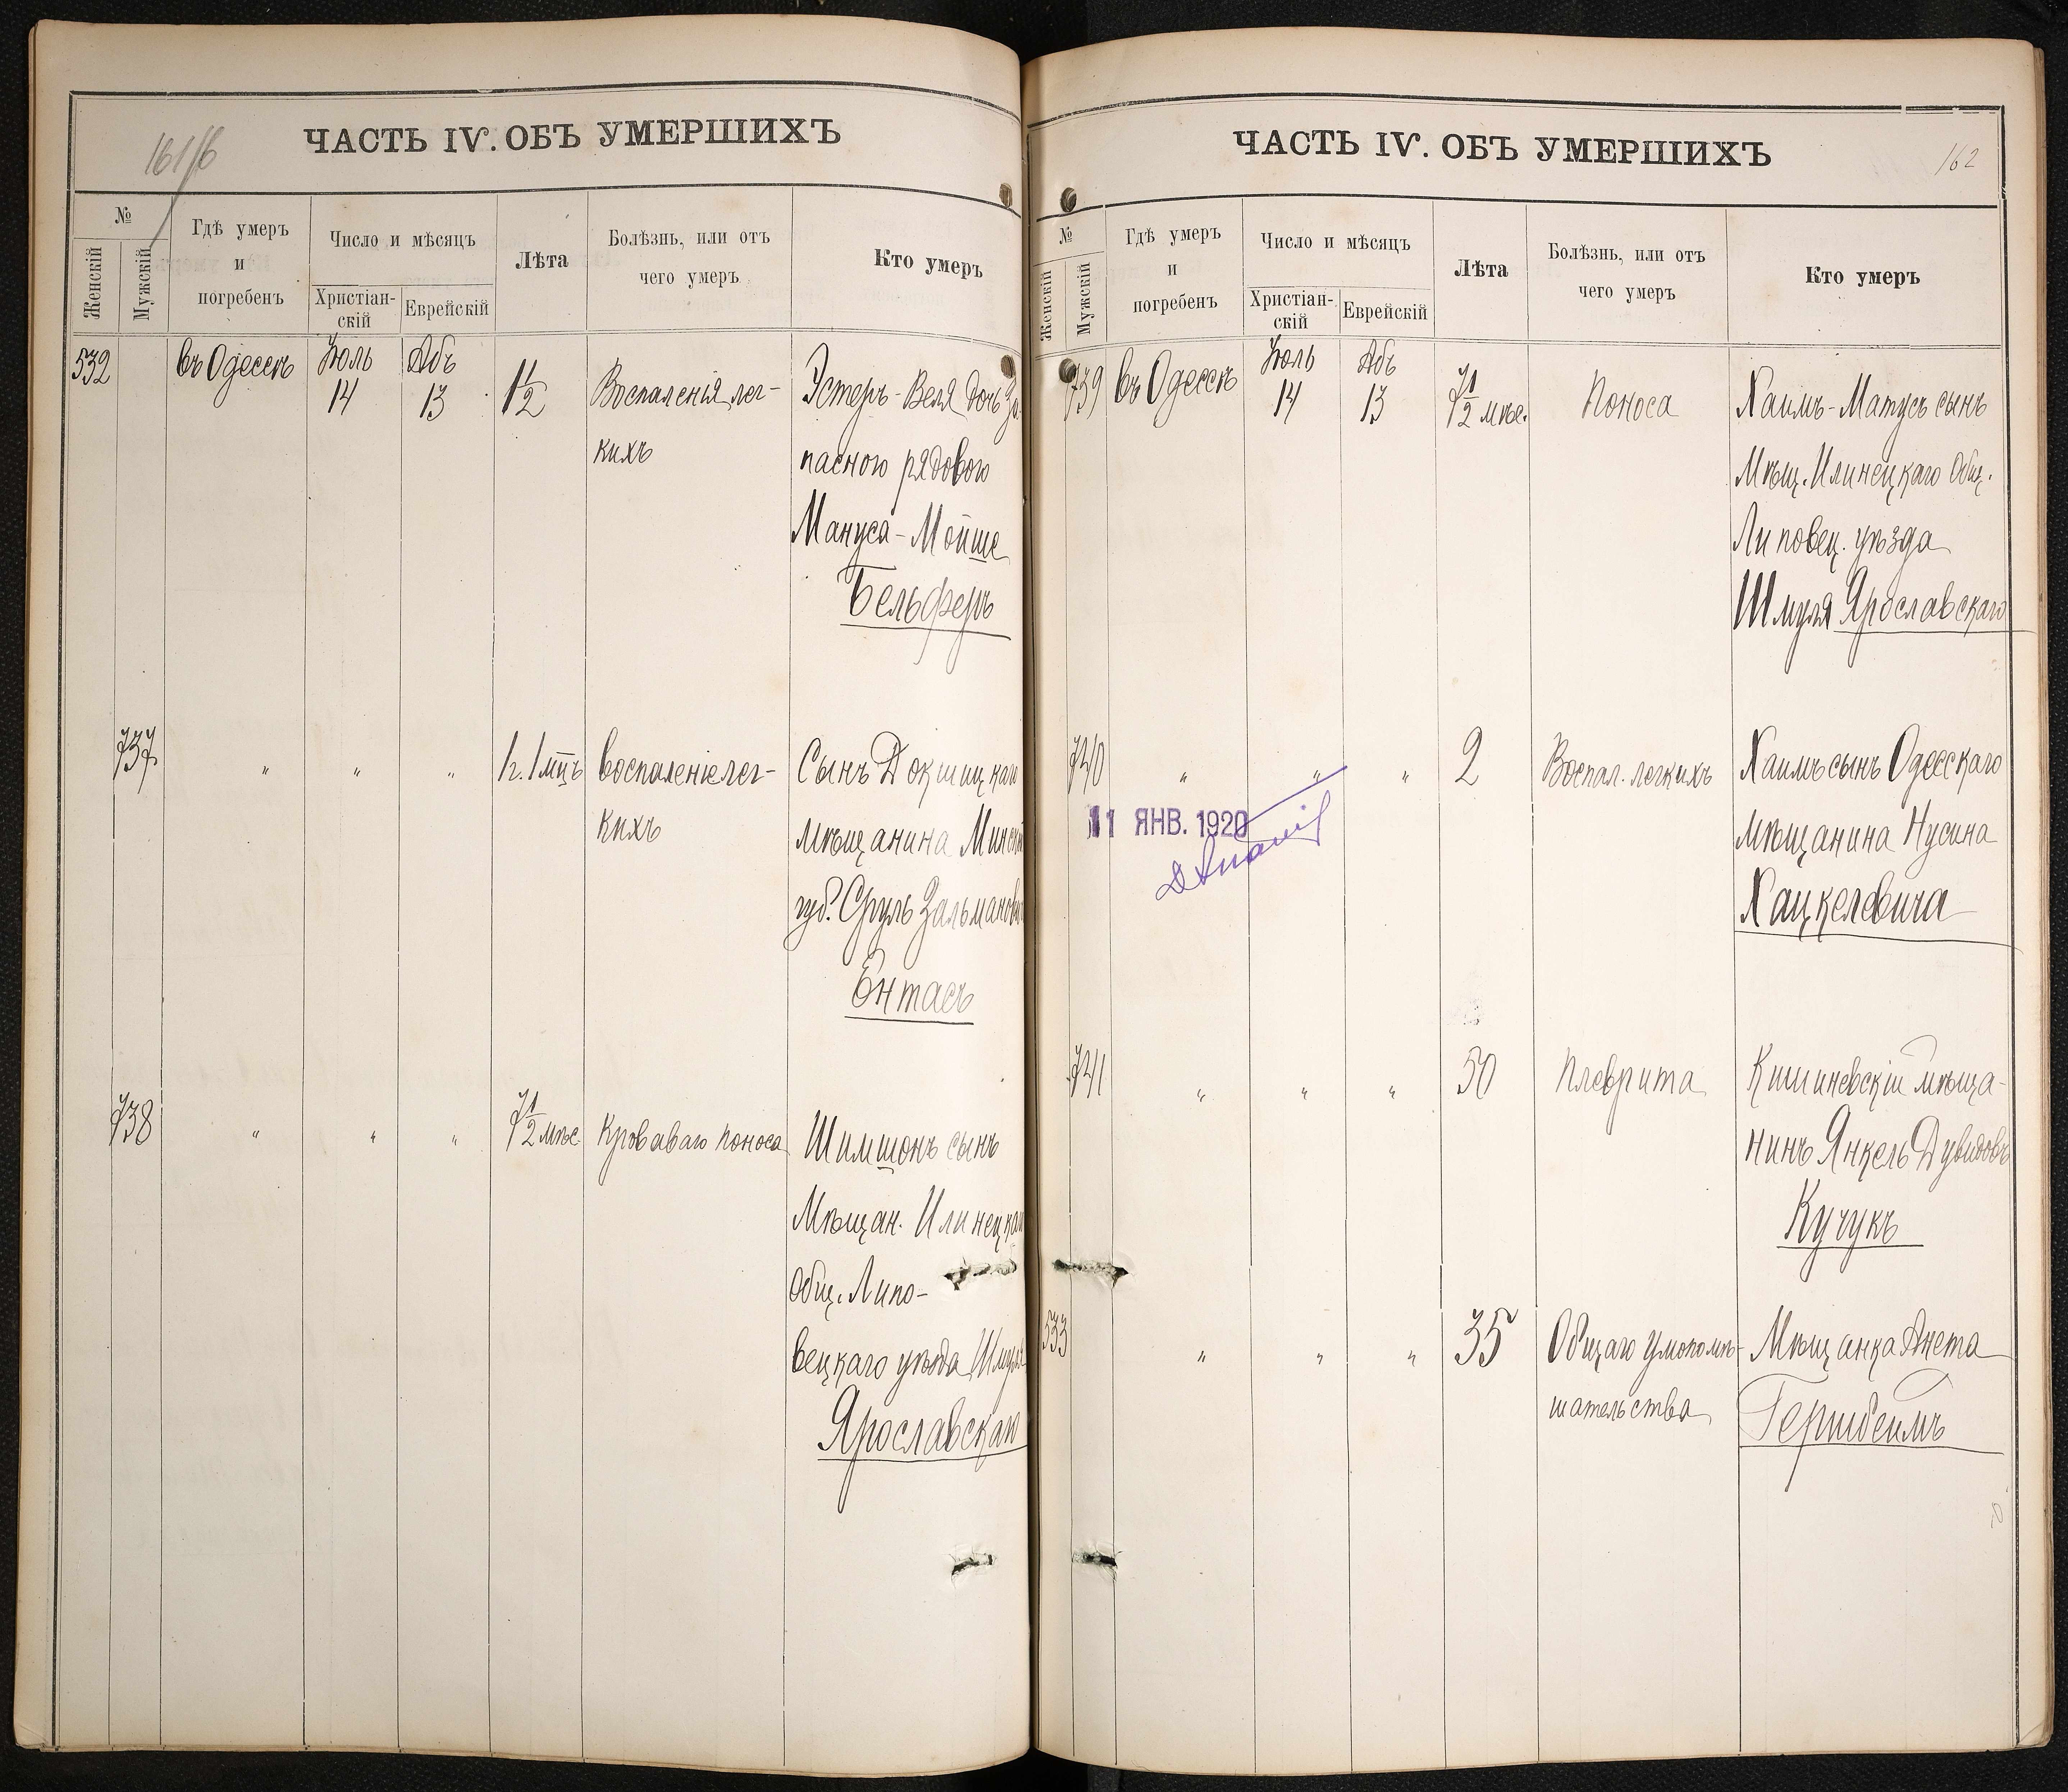 161/б
ЧАСТЬ IV. ОБЪ УМЕРШИХЪ
№
Женскій
Мужскій
Гдѣ умеръ
и
погребенъ
Число и мѣсяцъ
Христіан-
скій
Еврейскій
Лѣта
Болѣзнь, или отъ
чего умеръ
Кто умеръ
532
въ Одессѣ
Іюль
14
Абъ
13
1 1/2
Воспаленія лег-
кихъ
Эстеръ-Веля дочь За-
пасного рядового
Мануса-Мойше
Бельферъ
737
"
"
"
1 г. 1 мцъ
воспаленіе лег-
кихъ
Сынъ Докшицкаго
мѣщанина Минской
губ. Сруль Зальманов
Ентасъ
738
"
"
"
7 1/2 мѣс.
Кроваваго поноса
Шимшонъ сынъ
Мѣщан. Илинецкаго
общ. Липо-
вецкаго уѣзда Шмуля
Ярославскаго
162
ЧАСТЬ IV. ОБЪ УМЕРШИХЪ
№
Женскій
Мужскій
Гдѣ умеръ
и
погребенъ
Число и мѣсяцъ
Христіан-
скій
Еврейскій
Лѣта
Болѣзнь, или отъ
чего умеръ
Кто умеръ
739
въ Одессѣ
Іюль
14
Абъ
13
7 1/2 мѣс.
Поноса
Хаимъ-Матусъ сынъ
Мѣщ. Илинецкаго общ.
Липовец. уѣзда
Шмуля Ярославскаго
740
"
"
"
2
Воспал. легкихъ
Хаимъ сынъ Одесскаго
мѣщанина Нусина
Хацкелевича
11 ЯНВ. 1920
741
"
"
"
50
Плеврита
Кишиневскій мѣща-
нинъ Янкель Дувидовъ
Кучукъ
533
"
"
"
35
Общаго умопомѣ-
шательства
Мѣщанка Анета
Гершбеимъ